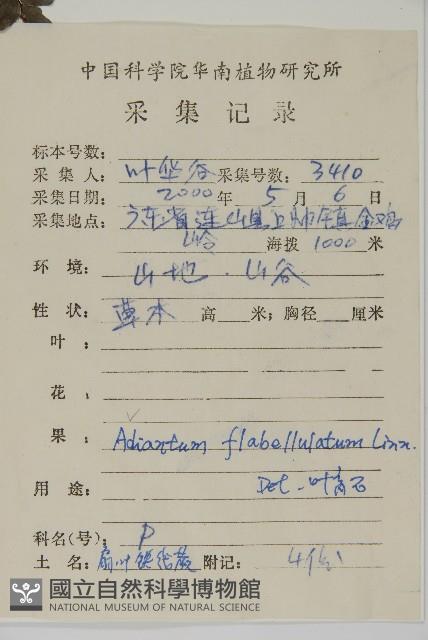 中国科学院华南植物研究所
采集记录
标本号数:
采集人: 叶华谷 采集号数: 3410
采集日期: 2000 年 5 月 6 日
采集地点: 广东省连山县上帅镇金鸡
山岭 海拨 1000 米
环境: 山地.山谷
性状: 草本 高 米; 胸径 厘米
叶:
花:
果: Adiantum flabellulatum Linn.
用途: Det. 叶育石
科名(号): P
土名: 扇叶铁线蕨 附记: 4份
國立自然科學博物館
NATIONAL MUSEUM OF NATURAL SCIENCE